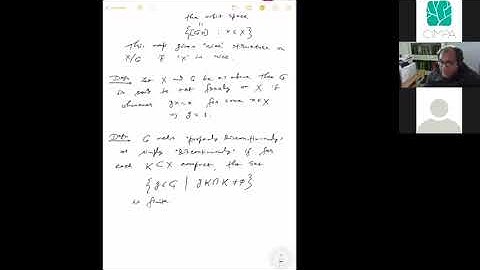 the orbit space
{[Gx] : x ∈ X}
This map gives "nice" structure on
X/G if 'X' is nice.
Defn: Let X and G be as above then G
is said to act freely on X if
whenever gx = x for some x ∈ X
⇒ g = 1.
Defn: G acts "properly discontinuously"
or simply "discontinuously" if for
each K ⊂ X compact, the set
{g ∈ G | gK ∩ K ≠ ∅}
is finite
CIMPA